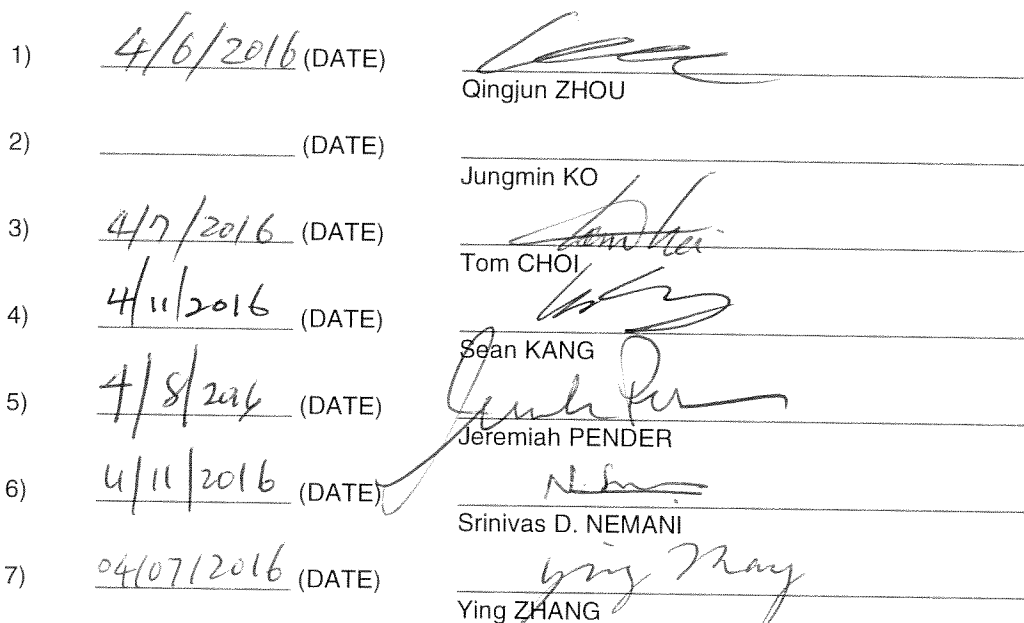 1) 4/6/2016 (DATE)
Qingjun ZHOU
2) (DATE)
Jungmin KO
3) 4/7/2016 (DATE)
Tom CHOI
4) 4/11/2016 (DATE)
Sean KANG
5) 4/8/2016 (DATE)
Jeremiah PENDER
6) 4/11/2016 (DATE)
Srinivas D. NEMANI
7) 04/07/2016 (DATE) Ying Zhang
Ying ZHANG